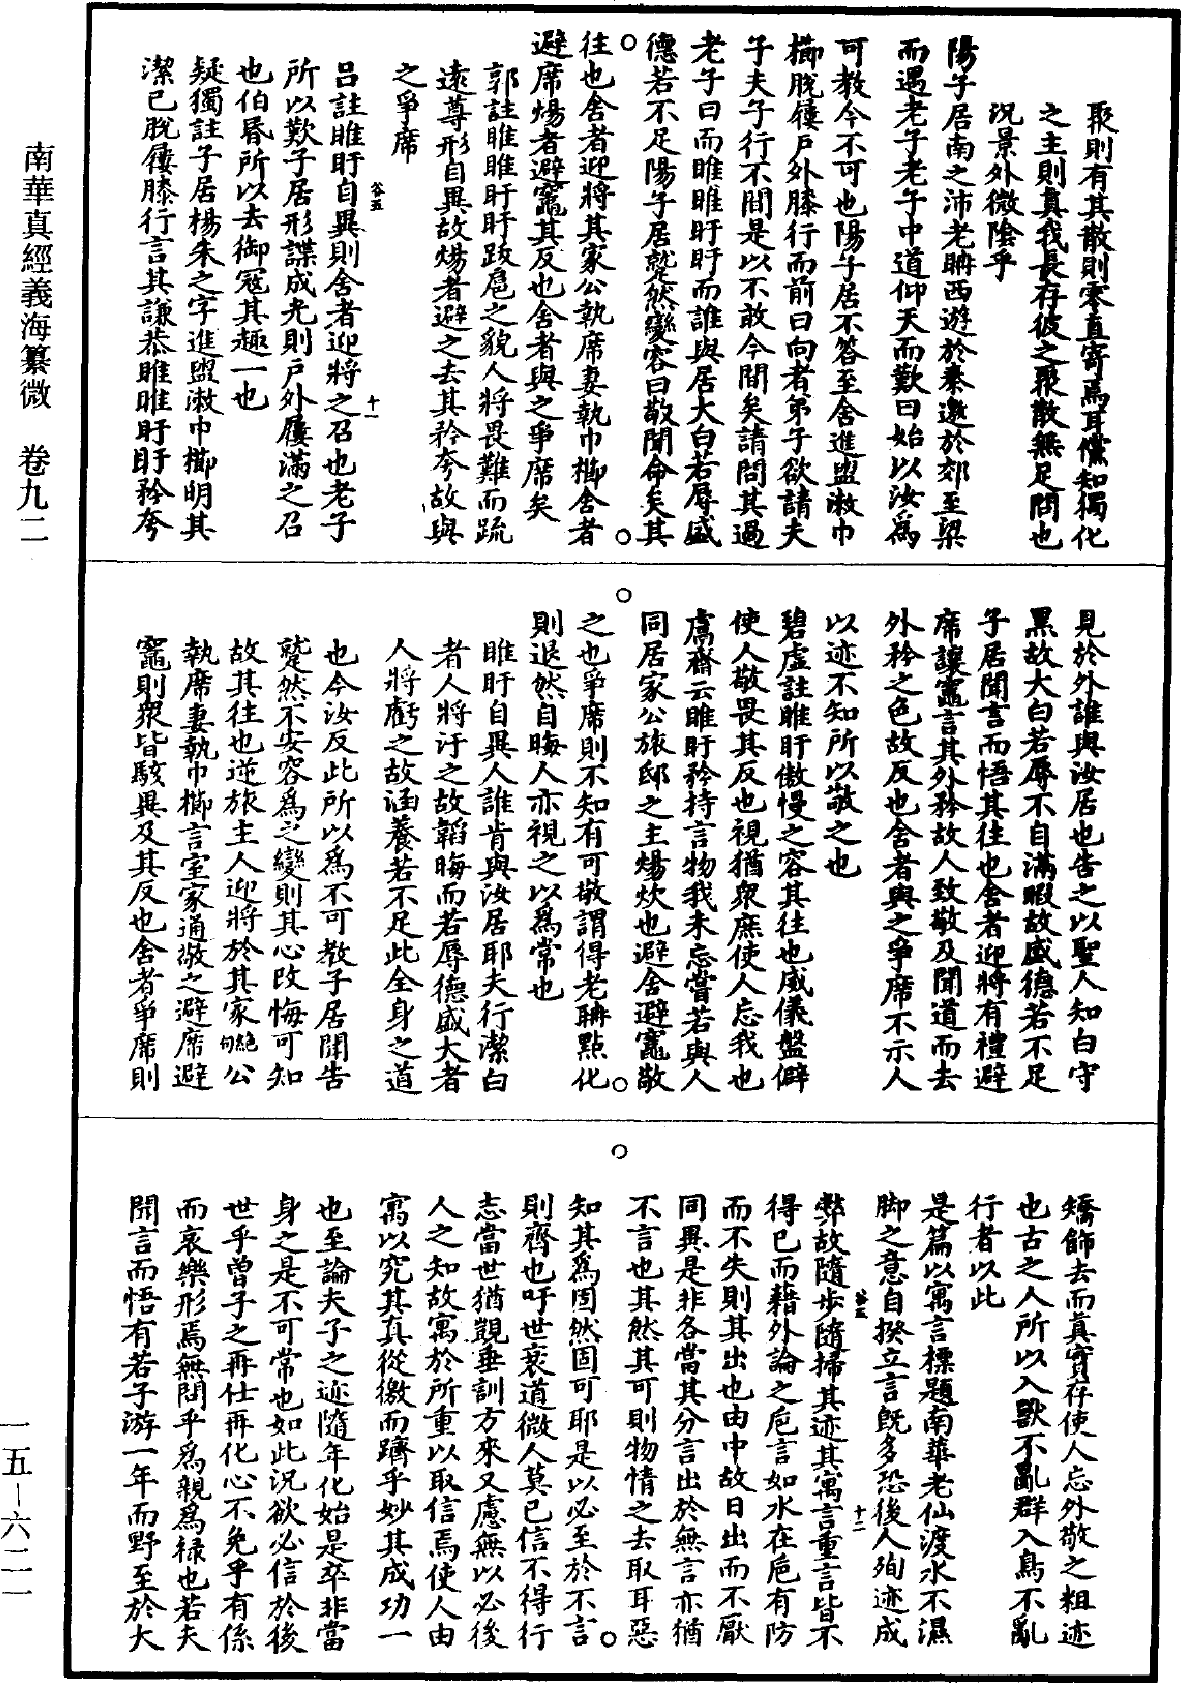 南華真經義海纂微　卷九二
一五—六二一
聚則有其散則零直寄焉耳儻知獨化
之主則真我長存彼之聚散無足問也
況景外微陰乎
陽子居南之沛老聃西遊於秦邀於郊至梁
而遇老子老子中道仰天而歎曰始以汝為
可教今不可也陽子居不答至舍進盥漱巾
櫛脫屨戶外膝行而前曰向者弟子欲請夫
子夫子行不間是以不敢今間矣請問其過
老子曰而睢睢盱盱而誰與居大白若辱盛
德若不足陽子居蹵然變容曰敬聞命矣其
往也舍者迎將其家公執席妻執巾櫛舍者
避席煬者避竈其反也舍者與之爭席矣
郭註睢睢盱盱跋扈之貌人將畏難而疏
遠尊形自異故煬者避之去其矜夸故與
之爭席
谷五
十一
呂註睢盱自異則舍者迎將之召也老子
所以歎子居形諜成光則戶外屨滿之召
也伯昬所以去御寇其趣一也
疑獨註子居楊朱之字進盥漱巾櫛明其
潔己脫屨膝行言其謙恭睢睢盱盱矜夸
見於外誰與汝居也告之以聖人知白守
黑故大白若辱不自滿暇故盛德若不足
子居聞言而悟其往也舍者迎將有禮避
席讓竈言其外矜故人致敬及聞道而去
外矜之色故反也舍者與之爭席不示人
以迹不知所以敬之也
碧虛註睢盱傲慢之容其往也威儀盤僻
使人敬畏其反也視猶衆庶使人忘我也
鬳齋云睢盱矜持言物我未忘嘗若與人
同居家公旅邸之主煬炊也避舍避竈敬
之也爭席則不知有可敬謂得老聃點化
則退然自晦人亦視之以為常也
睢盱自異人誰肯與汝居耶夫行潔白
者人將汙之故韜晦而若辱德盛大者
人將虧之故涵養若不足此全身之道
也今汝反此所以為不可教子居聞告
蹵然不安容為之變則其心改悔可知
故其往也逆旅主人迎將於其家絕句公
執席妻執巾櫛言室家通敬之避席避
竈則衆皆駭異及其反也舍者爭席則
矯飾去而真實存使人忘外敬之粗迹
也古之人所以入獸不亂群入鳥不亂
行者以此
是篇以寓言標題南華老仙渡水不濕
脚之意自揆立言旣多恐後人殉迹成
谷五
十二
弊故隨步隨掃其迹其寓言重言皆不
得已而藉外論之巵言如水在巵有防
而不失則其出也由中故日出而不厭
同異是非各當其分言出於無言亦猶
不言也其然其可則物情之去取耳惡
知其為固然固可耶是以必至於不言
則齊也吁世衰道微人莫已信不得行
志當世猶覬垂訓方來又慮無以必後
人之知故寓於所重以取信焉使人由
寓以究其真從徼而躋乎妙其成功一
也至論夫子之迹隨年化始是卒非當
身之是不可常也如此況欲必信於後
世乎曾子之再仕再化心不免乎有係
而哀樂形焉無問乎為親為祿也若夫
開言而悟有若子游一年而野至於大